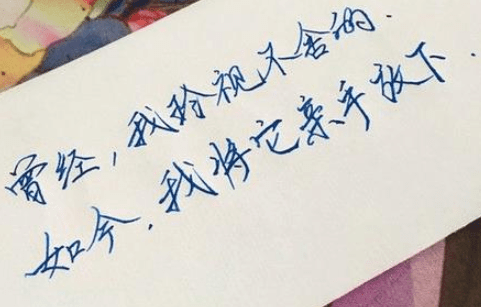 曾经,我珍视不舍的.
如今.我将它亲手放下.